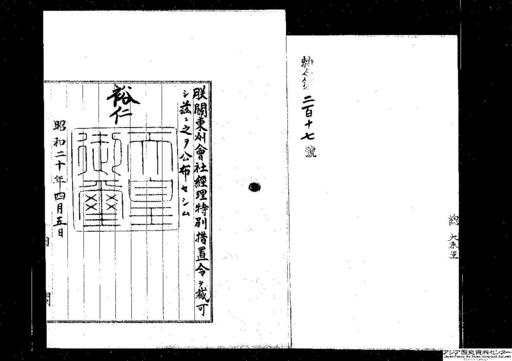 勅令第二百十七號
朕關東州會社經理特別措置令ヲ裁可
シ茲ニ之ヲ公布セシム
裕仁
天皇御璽
昭和二十年四月五日
内閣
アジア歴史資料センター
Japan Center for Asian Historical Records